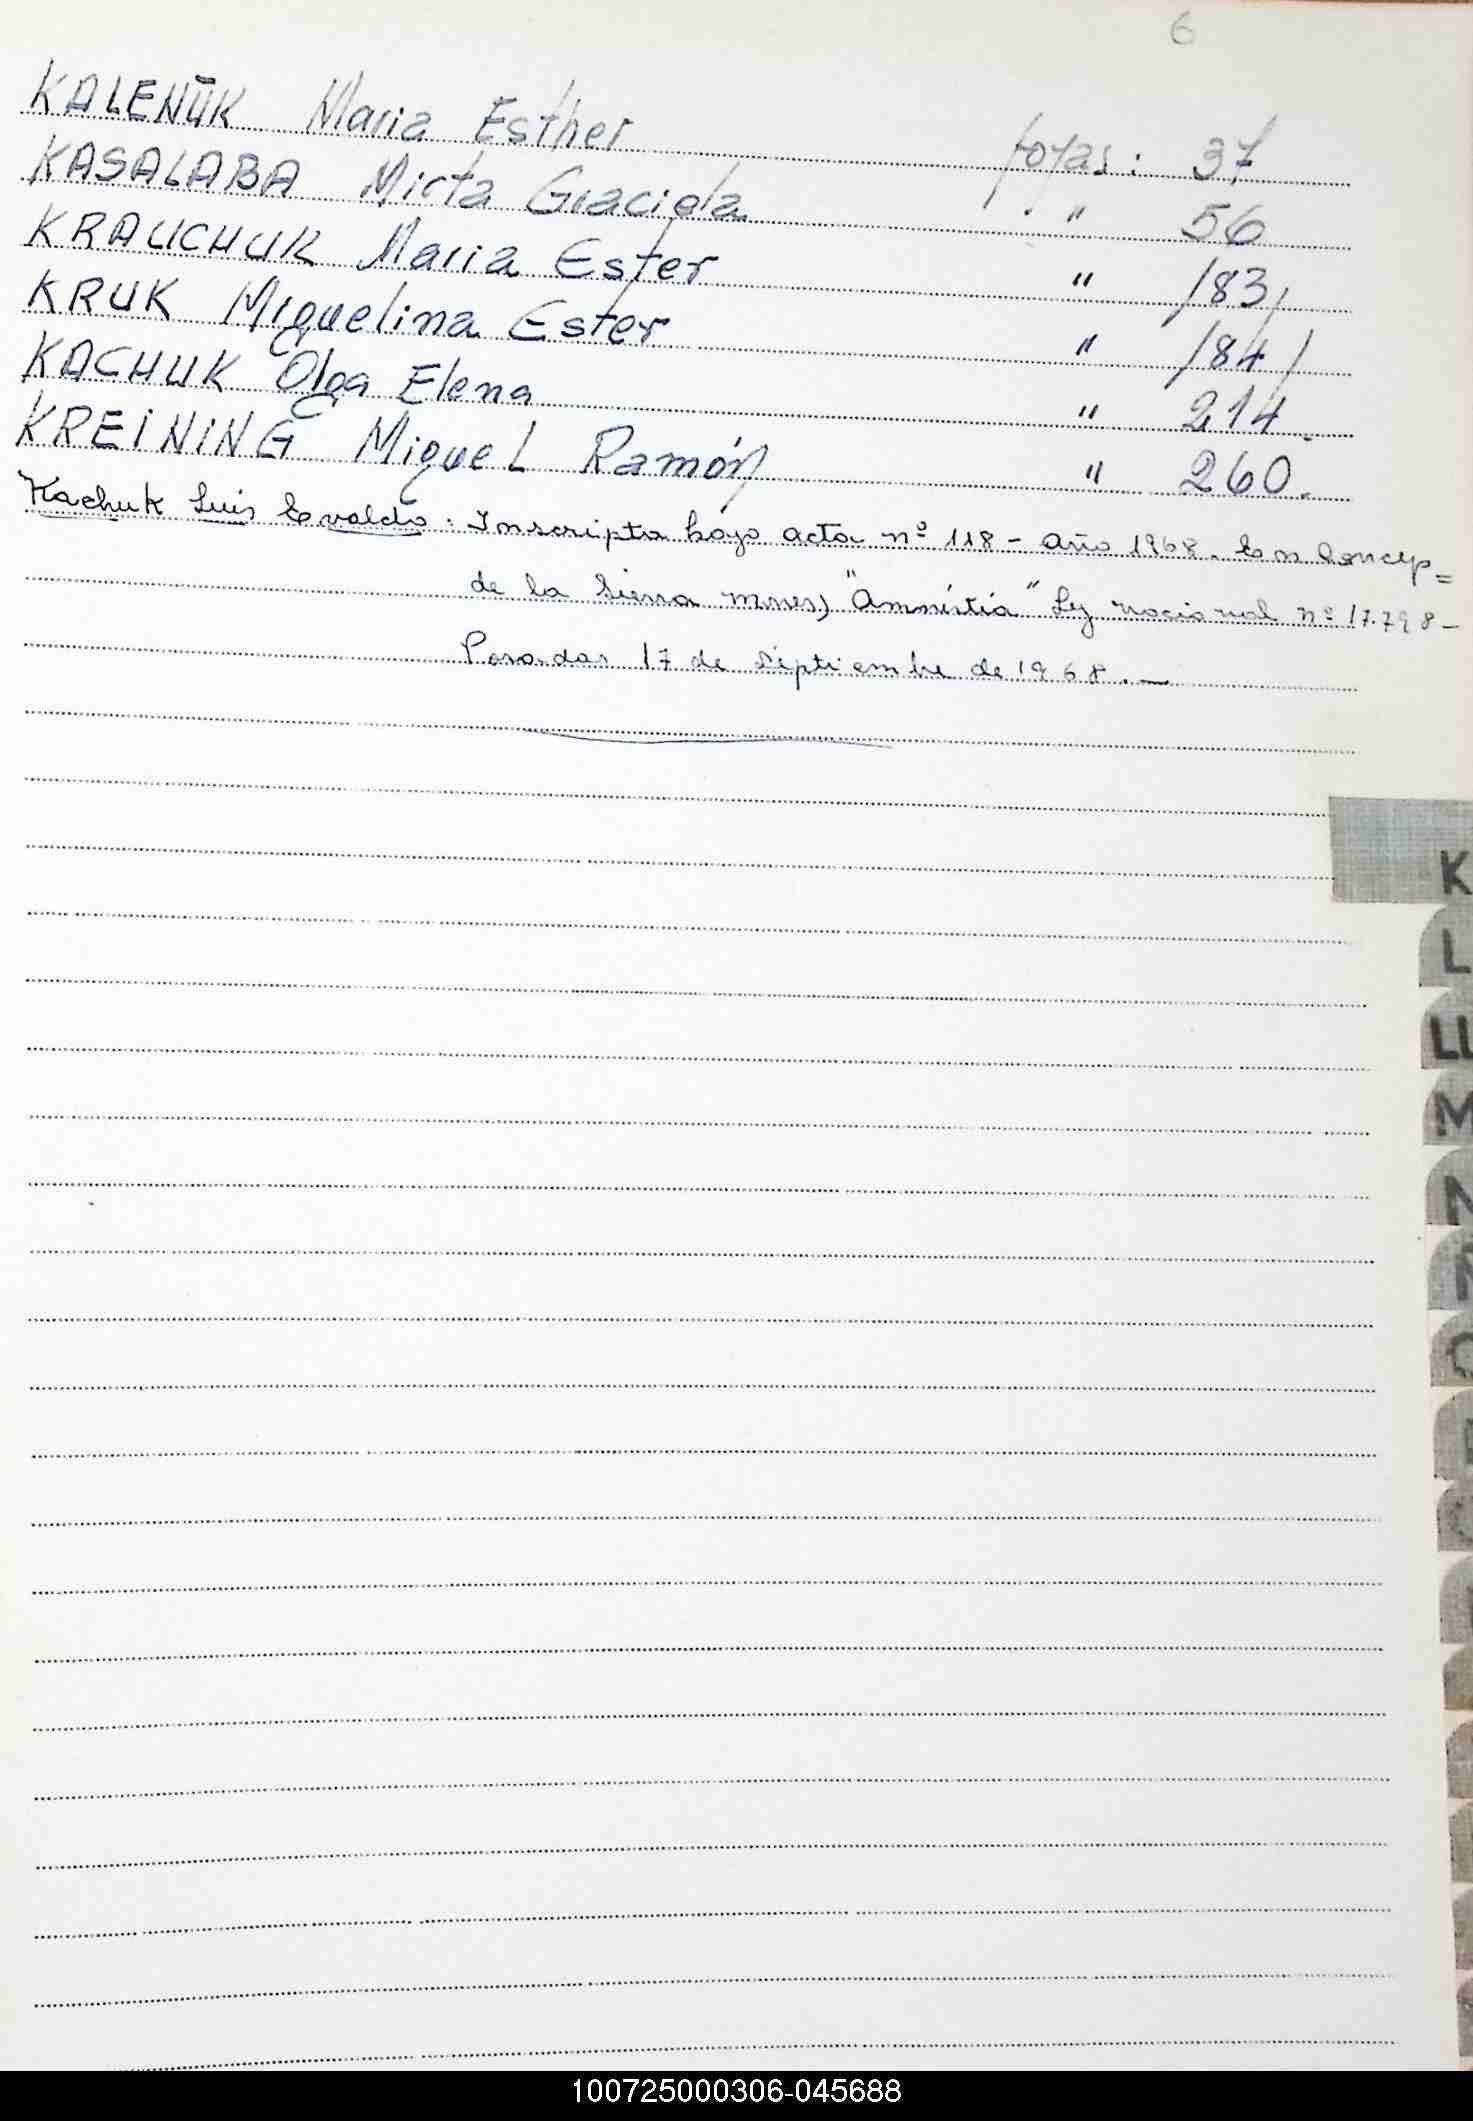 6
KALENUK Maria Esther fojas: 37
KASALABA Mirta Graciela " 56
KRAUCHUK Maria Ester " 183/
KRUK Miguelina Ester " 184/
KACHUK Olga Elena " 214.
KREINING Miguel Ramón " 260.
Kachuk Luis Evaldo: Inscripta bajo acta nº 118 - año 1968. En Concep=
de la Sierra mnes) "Amnistia" Ley nacional nº 17.798-
Posadas 17 de septiembre de 1968.-
K
L
LL
M
N
100725000306-045688